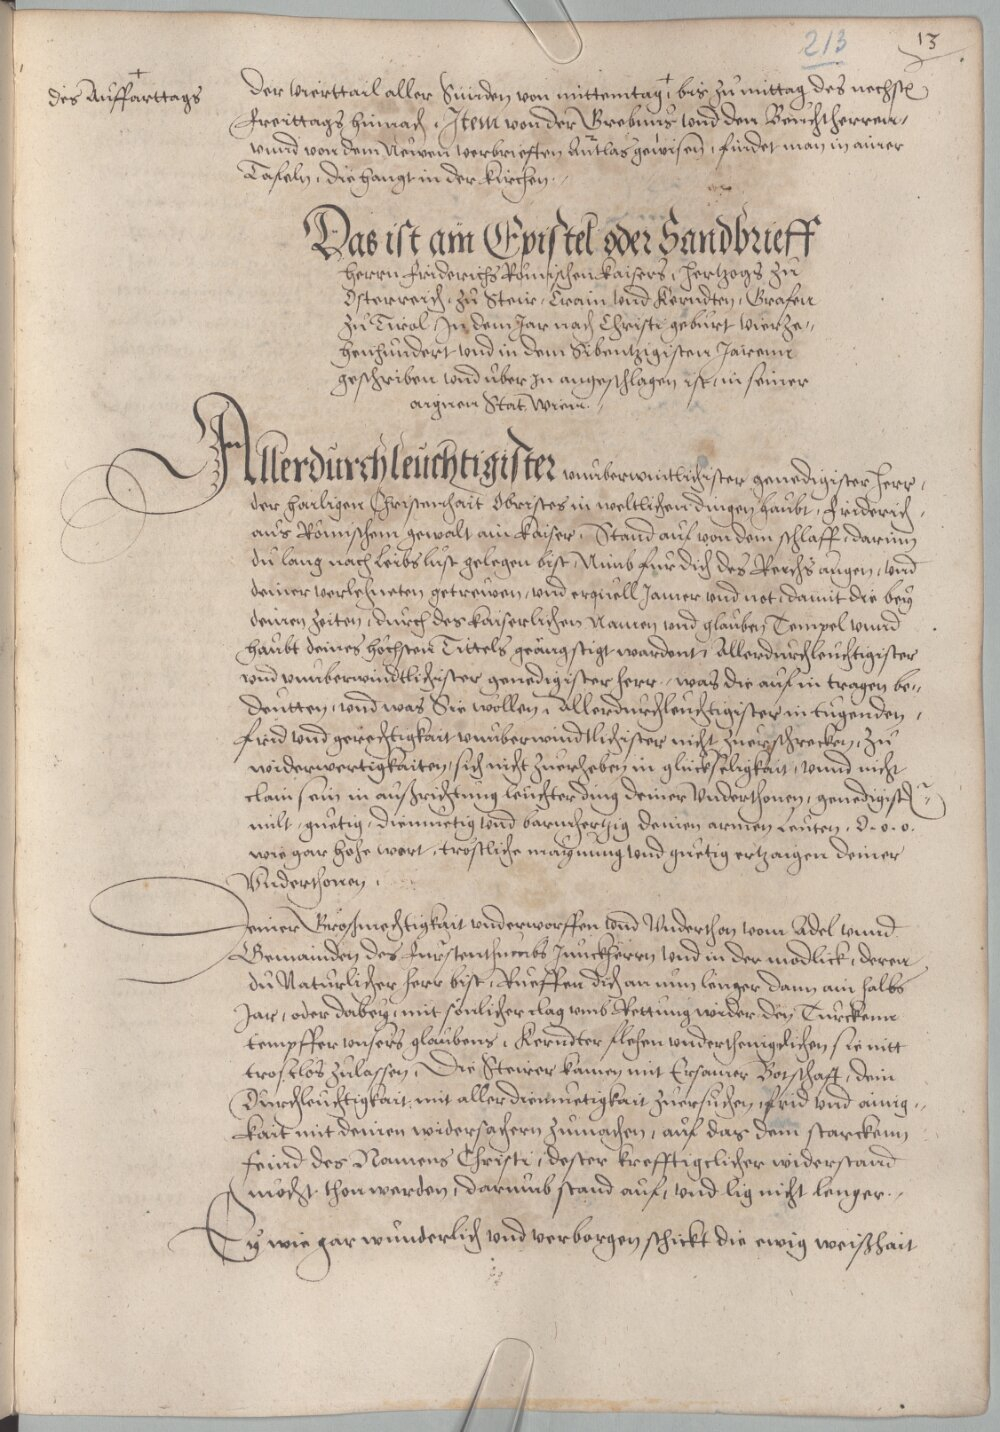 213
13
des Auffarttags
der vierttail aller Sünden von mittemtag, bis zu mittag des nechsten
freittags hinnach, Item von der Grebnus und den Beichtherren,
vnnd von dem Newen verbrieften Antlas gewisen, findet man in ainer
Tafeln, die hangt in der kirchen.
Das ist ain Epistel oder Sandbrieff
Herrn Friderichs Römischen Kaisers, Hertzogs zu
Österreich, zu Steir, Crain vnd Kerndten, Grafen
zu Tirol, In dem Jar nach Christi geburt vierze-
henhundert vnd in dem Sibentzigisten Jarenn
geschriben vnd über In angeschlagen ist, in seiner
aignen Stat Wienn.
Allerdurchleuchtigister vnuberwintlichister genedigister Herr,
der hailigen Christenhait Obristes in weltlichen dingen haubt, Friderich,
aus Römischem gewalt ain Kaiser, Stand auf von dem schlaff, darinn
du lang nach leibs lust gelegen bist, Nimb fur dich des Reichs augen, vnd
deiner verlehneten getrewen, vnd erquell Jamer vnd not, damit die bey
deinen zeiten, durch des kaiserlichen Namen vnd glauben Tempel vnnd
haubt deines höchsten Tittels geängstigt wardent, Allerdurchleuchtigister
vnd vnuberwindtlichister genedigister herr, was die auf in tragen be-
deutten, vnd was Sie wöllen, Allerdurchleuchtigister in tugenden,
frid vnd gerechtigkait vnuberwindtlichister nicht zuerschrecken, zu
widerwertigkaiten, sich nicht zuerheben in glückseligkait, vnnd nicht
clain sein in außrichtung leuchter ding deiner Vnderthonen, genedigist
milt, guetig, diemuetig vnd barmhertzig deinen armen Leuten, O. o. o.
wie gar hohe wert, trostliche maynung vnd guetig ertzaigen deiner
Vnderthonen.
Deiner Großmechtigkait vnderworffen vnd Vnderthon vom Adel vnnd
Gemainden des Furstenthumbs Junckherrn vnd in der modlick, deren
du Naturlicher herr bist, Rueffen dich an nun lenger dann ain halbs
Jar, oder dabey, mit sönlicher clag vmb Rettung wider den Turckenn
tempffer vnsers glaubens, Kerndter flehen vnderthenigclichen sie nitt
trostlos zulassen, Die Steirer kamen mit Ersamer Botschaft, dein
Durchleuchtigkait, mit aller diemuetigkait zuersuchen, frid vnd ainig-
kait mit deinen widersachern zumachen, auf das dem starckenn
feind des Namens Christi, dester krefftigclicher widerstand
möcht thon werden, darumb stand auf, vnd lig nicht lenger.
Ey wie gar wunderlich vnd verborgen schickt die ewig weißhait